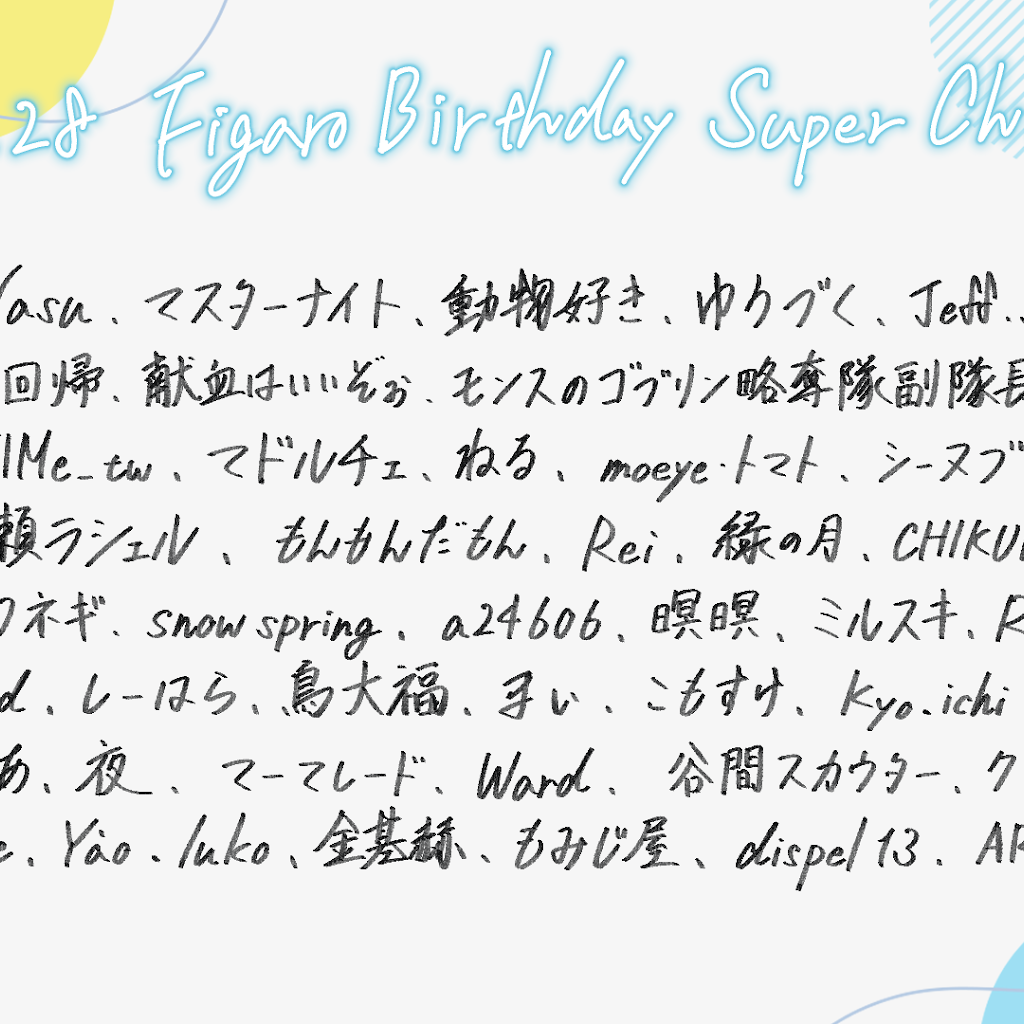 28 Figaro Birthday Super Ch
Yasu、マスターナイト、動物好き、ゆりづく、Jeff..
回帰、献血はいいぞぉ、モンスのゴブリン略奪隊副隊長
IMe_tw、マドルチェ、ねる、moeye・トマト、シーヌブ
頼ラシェル、もんもんだもん、Rei、緑の月、CHIKU
ワネギ、snow spring、a24606、暝暝、ミルスキ、R
d、しーはら、鳥大福、まぃ、こもすけ、kyo.ichi
あ、夜、マーマレード、Ward、谷間スカウター、ク
e、Yao・luko、もみじ屋、dispel13、AR